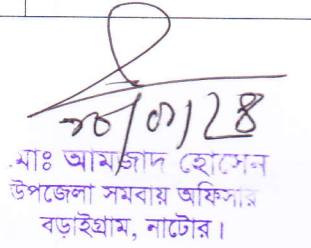 মোঃ আমজাদ হোসেন
উপজেলা সমবায় অফিসার
বড়াইগ্রাম, নাটোর।